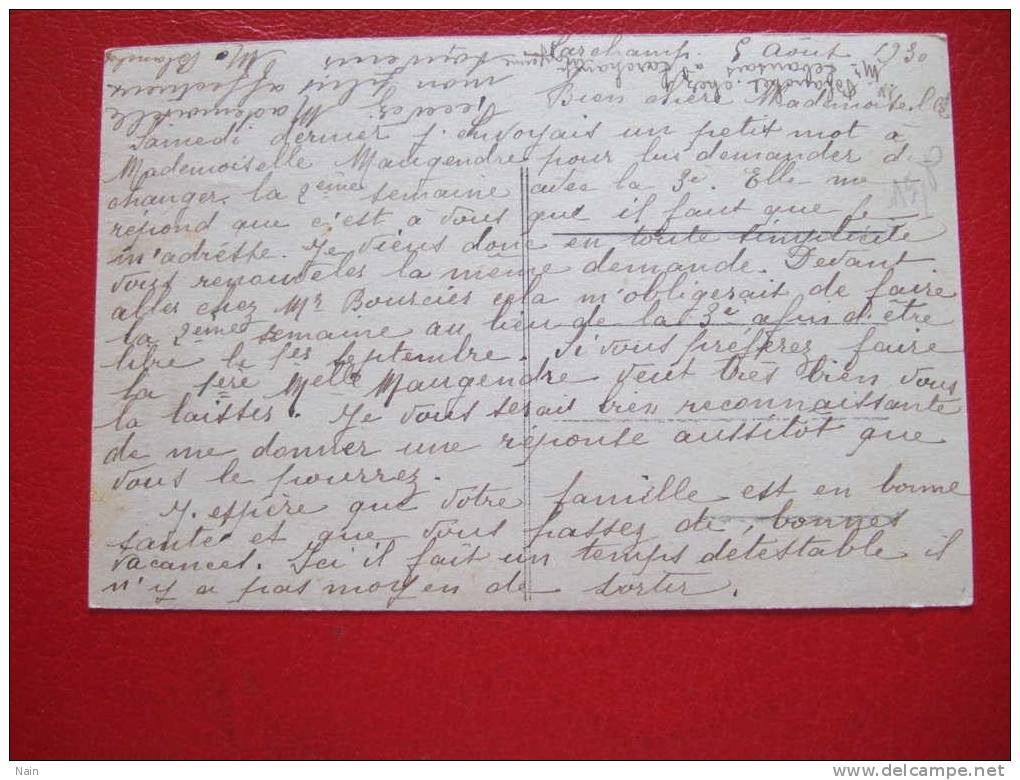 Larchamp. 5 Août 1930
Bien chère Mademoiselle
Samedi dernier j'envoyais un petit mot à
Mademoiselle Maugendre pour lui demander de
changer la 2ème semaine avec la 3e. Elle me
répond que c'est à vous que il faut que je
m'adresse. Je viens donc en toute simplicité
vous renouveler la même demande. Devant
aller chez Mr Bourcier cela m'obligerait de faire
la 2ème semaine au lieu de la 3e afin d'être
libre le 1er Septembre. Si vous préférez faire
la 1ère Melle Maugendre veut très bien vous
la laisser. Je vous serais bien reconnaissante
de me donner une réponse aussitôt que
vous le pourrez.
J'espère que votre famille est en bonne
santé et que vous passez de bonnes
vacances. Ici il fait un temps détestable il
n'y a pas moyen de sortir.
Recevez Mademoiselle
mon plus affectueux
souvenir
M. Blanche
chez Mr
à Larchamp
Nain
www.delcampe.net